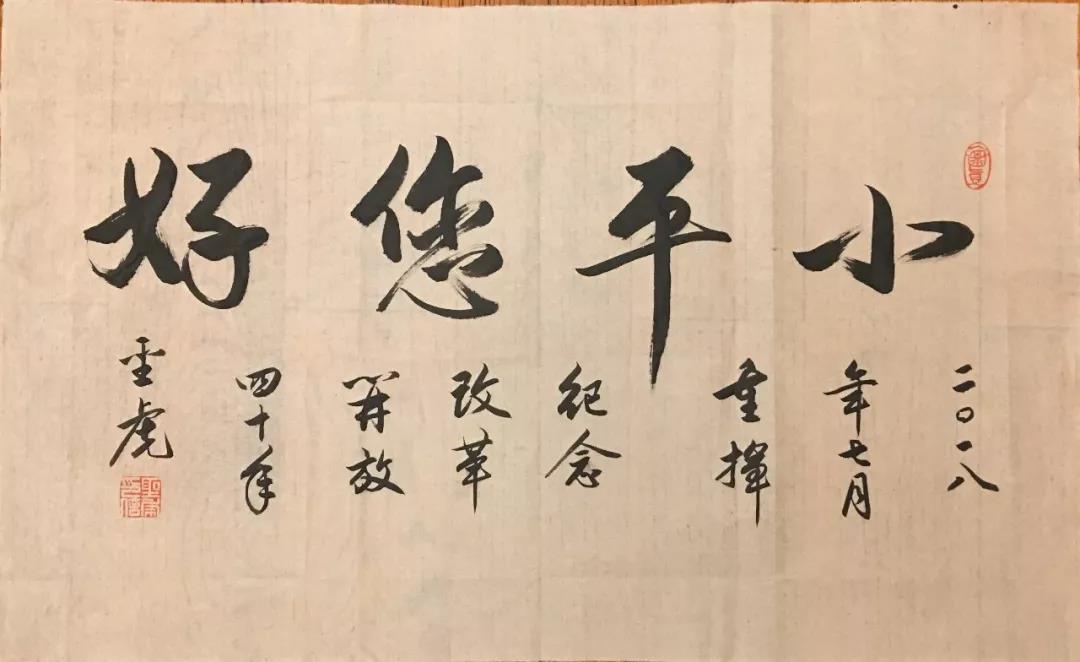 小平您好
二〇一八
年七月
重揮
纪念
改革
開放
四十年
圣虎